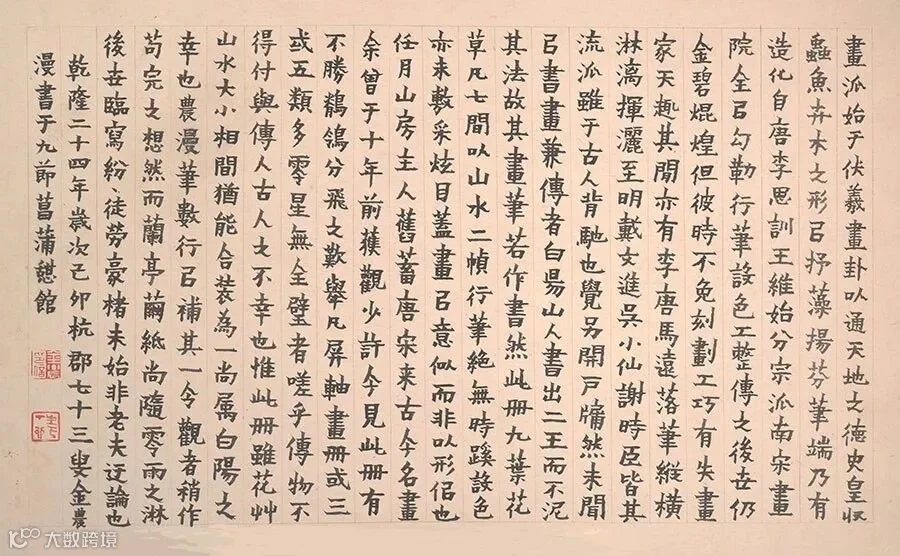 畫派始于伏羲畫卦以通天地之德史皇收
蟲魚卉木之形㠯抒藻揚芬筆端乃有
造化自唐李思訓王維始分宗派南宋畫
院全㠯勾勒行筆設色工整傳之後世仍
金碧焜煌但彼時不免刻劃工巧有失畫
家天趣其閒亦有李唐馬遠落筆縱橫
淋漓揮灑至明戴文進吳小仙謝時臣皆其
流派雖于古人背馳也覺另開戶牖然未聞
㠯書畫兼傳者白陽山人書出二王而不泥
其法故其畫筆若作書然此冊九葉花
草凡七間以山水二幀行筆絕無時蹊設色
亦未敷采炫目蓋畫㠯意似而非以形侣也
任月山房主人舊蓄唐宋來古今名畫
余曾于十年前獲觀少許今見此冊有
不勝鶺鴒分飛之歎舉凡屏軸畫冊或三
或五類多零星無全璧者嗟乎傳物不
得付與傳人古人之不幸也惟此冊雖花艸
山水大小相間猶能合裝為一尚屬白陽之
幸也農漫筆數行㠯補其一令觀者稍作
苟完之想然而蘭亭繭紙尚隨零雨之淋
後世臨寫紛、徒勞豪楮未始非老夫迂論也
乾隆二十四年歲次己卯杭郡七十三叟金農
漫書于九節菖蒲憇館
大数跨境